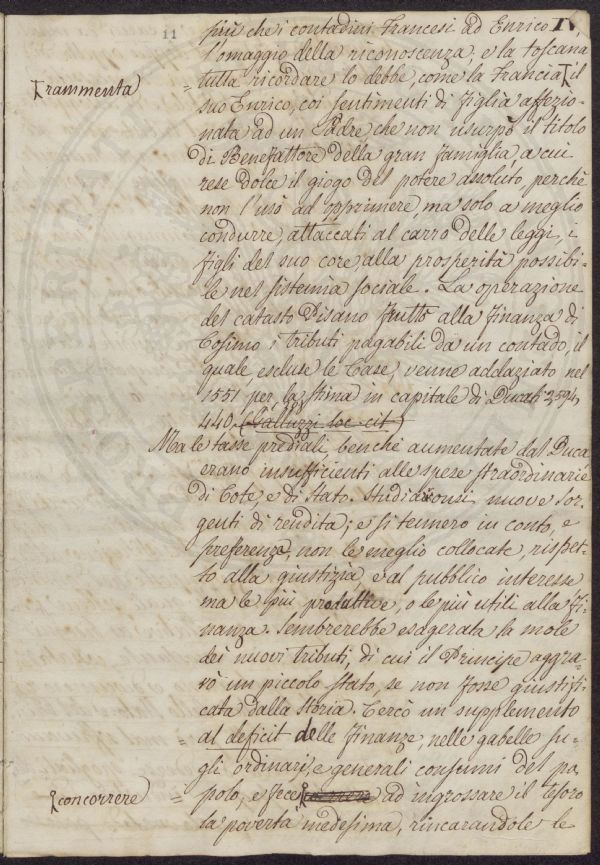 11
più che i contadini Francesi ad Enrico IV,
l'omaggio della riconoscenza, e la toscana
[rammenta
tutta ricordare lo debbe, come la Francia [il
suo Enrico, coi sentimenti di figlia affezio-
nata ad un Padre che non usurpò il titolo
di Benefattore della gran famiglia, a cui
rese dolce il giogo del potere assoluto, perchè
non l'usò ad opprimere, ma solo a meglio
condurre, attaccati al carro delle leggi, i
figli del suo core, alla prosperità possibi-
le nel sistema sociale. La operazione
del catasto Pisano fruttò alla Finanza di
Cosimo i tributi pagabili da un contado, il
quale, escluse le Case, venne addaziato nel
1551 per la stima in capitale di Ducati 2594,
440. (Galluzzi loc. cit.)
Ma le tasse prediali, benchè aumentate dal Duca
erano insufficienti alle spese straordinarie
di Cote, e di Stato. Studiaronsi nuove sor-
genti di rendita; e si tennero in conto, e
preferenza, non le meglio collocate, rispet-
to alla giustizia, e al pubblico interesse
ma le più produttive, o le più utili alla Fi-
nanza. Sembrerebbe esagerata la mole
dei nuovi tributi, di cui il Principe aggra-
vò un piccolo Stato, se non fosse giustifi-
cata dalla Storia. Cercò un supplemento
= al deficit delle Finanze, nelle gabelle su-
gli ordinari, e generali consumi del po-
[concorrere =
polo, e fece [ ad ingrossare il tesoro
la povertà medesima, rincarandole le